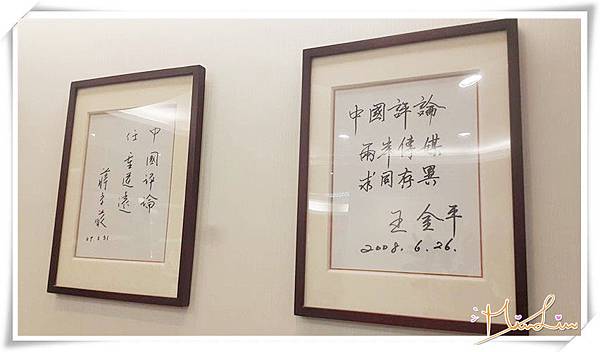 中國評論
任重道遠
蔣孝嚴
中國評論
兩岸傳媒
求同存異
王金平
2008.6.26.